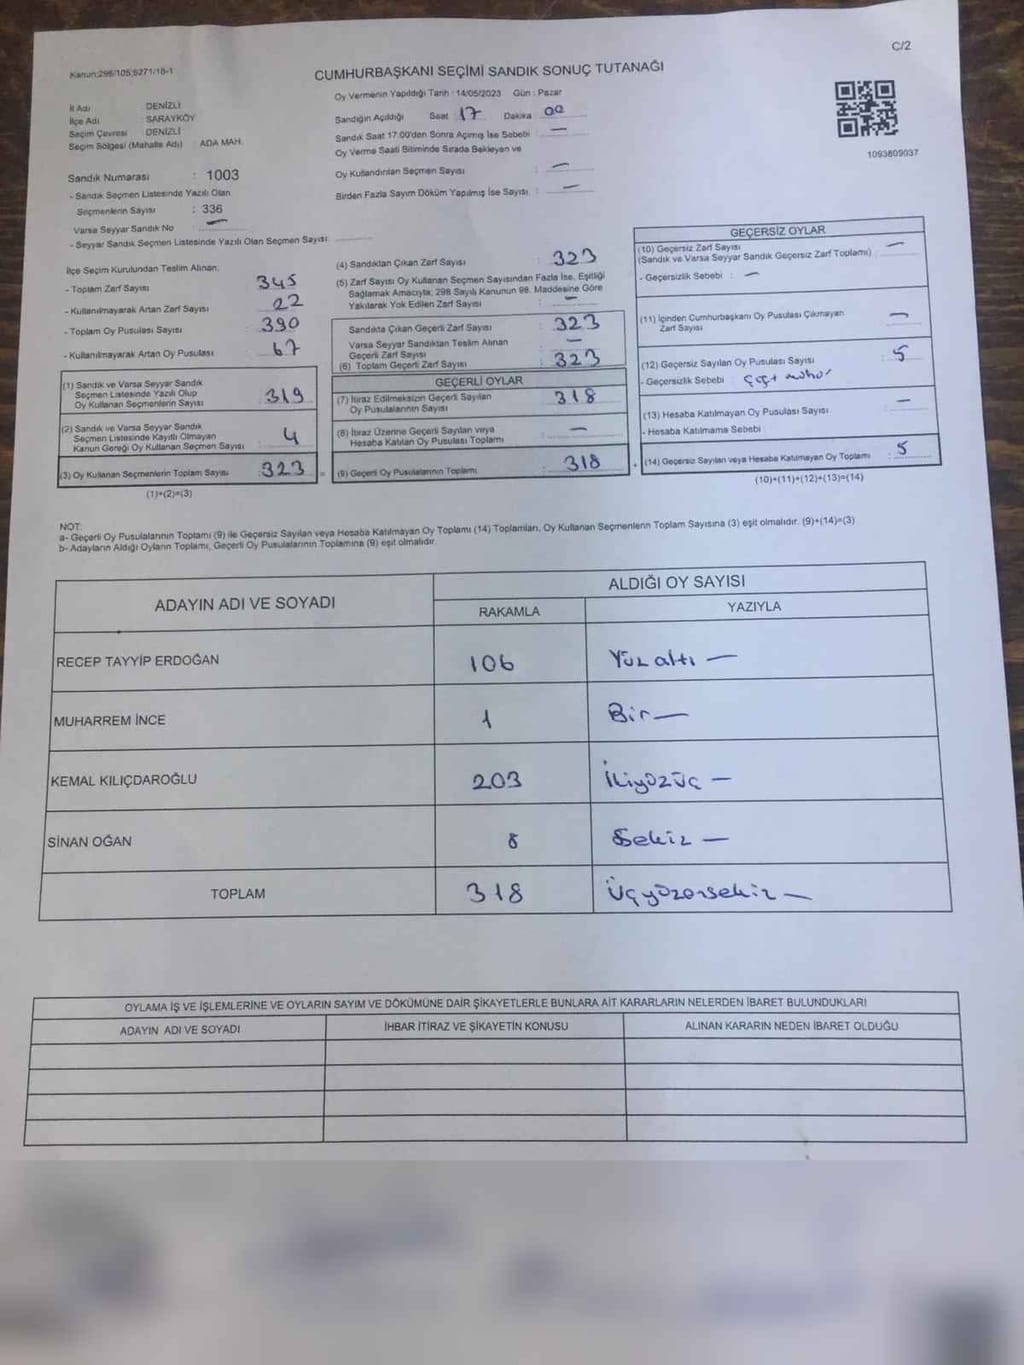 C/2
Kanun:298/105;6271/18-1
CUMHURBAŞKANI SEÇİMİ SANDIK SONUÇ TUTANAĞI
Oy Vermenin Yapıldığı Tarih : 14/05/2023 Gün : Pazar
İl Adı DENİZLİ
İlçe Adı SARAYKÖY
Seçim Çevresi DENİZLİ
Seçim Bölgesi (Mahalle Adı) ADA MAH.
Sandığın Açıldığı Saat 17 Dakika 00
Sandık Saat 17.00'den Sonra Açılmış İse Sebebi : —
Oy Verme Saati Bitiminde Sırada Bekleyen ve
Oy Kullandırılan Seçmen Sayısı : —
Birden Fazla Sayım Döküm Yapılmış İse Sayısı : —
1093809037
Sandık Numarası : 1003
- Sandık Seçmen Listesinde Yazılı Olan
Seçmenlerin Sayısı : 336
Varsa Seyyar Sandık No —
- Seyyar Sandık Seçmen Listesinde Yazılı Olan Seçmen Sayısı:
İlçe Seçim Kurulundan Teslim Alınan:
- Toplam Zarf Sayısı 345
- Kullanılmayarak Artan Zarf Sayısı 22
- Toplam Oy Pusulası Sayısı 390
- Kullanılmayarak Artan Oy Pusulası 67
(1) Sandık ve Varsa Seyyar Sandık
Seçmen Listesinde Yazılı Olup
Oy Kullanan Seçmenlerin Sayısı 319
(2) Sandık ve Varsa Seyyar Sandık
Seçmen Listesinde Kayıtlı Olmayan
Kanun Gereği Oy Kullanan Seçmen Sayısı 4
(3) Oy Kullanan Seçmenlerin Toplam Sayısı 323 =
(1)+(2)=(3)
(4) Sandıktan Çıkan Zarf Sayısı : 323
(5) Zarf Sayısı Oy Kullanan Seçmen Sayısından Fazla İse, Eşitliği
Sağlamak Amacıyla; 298 Sayılı Kanunun 98. Maddesine Göre
Yakılarak Yok Edilen Zarf Sayısı : —
Sandıkta Çıkan Geçerli Zarf Sayısı : 323
Varsa Seyyar Sandıktan Teslim Alınan
Geçerli Zarf Sayısı : —
(6) Toplam Geçerli Zarf Sayısı : 323
GEÇERLİ OYLAR
(7) İtiraz Edilmeksizin Geçerli Sayılan
Oy Pusulalarının Sayısı : 318
(8) İtiraz Üzerine Geçerli Sayılan veya
Hesaba Katılan Oy Pusulası Toplamı : —
(9) Geçerli Oy Pusulalarının Toplamı : 318 +
GEÇERSİZ OYLAR
(10) Geçersiz Zarf Sayısı
(Sandık ve Varsa Seyyar Sandık Geçersiz Zarf Toplamı) : —
- Geçersizlik Sebebi : —
(11) İçinden Cumhurbaşkanı Oy Pusulası Çıkmayan
Zarf Sayısı : —
(12) Geçersiz Sayılan Oy Pusulası Sayısı : 5
- Geçersizlik Sebebi :
(13) Hesaba Katılmayan Oy Pusulası Sayısı : —
- Hesaba Katılmama Sebebi :
(14) Geçersiz Sayılan veya Hesaba Katılmayan Oy Toplamı : 5
(10)+(11)+(12)+(13)=(14)
NOT:
a- Geçerli Oy Pusulalarının Toplamı (9) ile Geçersiz Sayılan veya Hesaba Katılmayan Oy Toplamı (14) Toplamları, Oy Kullanan Seçmenlerin Toplam Sayısına (3) eşit olmalıdır. (9)+(14)=(3)
b- Adayların Aldığı Oyların Toplamı, Geçerli Oy Pusulalarının Toplamına (9) eşit olmalıdır.
ADAYIN ADI VE SOYADI ALDIĞI OY SAYISI
RAKAMLA YAZIYLA
RECEP TAYYİP ERDOĞAN 106 Yüz altı —
MUHARREM İNCE 1 Bir —
KEMAL KILIÇDAROĞLU 203 İkiyüzüç —
SİNAN OĞAN 8 Sekiz —
TOPLAM 318 Üçyüzonsekiz —
OYLAMA İŞ VE İŞLEMLERİNE VE OYLARIN SAYIM VE DÖKÜMÜNE DAİR ŞİKAYETLERLE BUNLARA AİT KARARLARIN NELERDEN İBARET BULUNDUKLARI
ADAYIN ADI VE SOYADI İHBAR İTİRAZ VE ŞİKAYETİN KONUSU ALINAN KARARIN NEDEN İBARET OLDUĞU